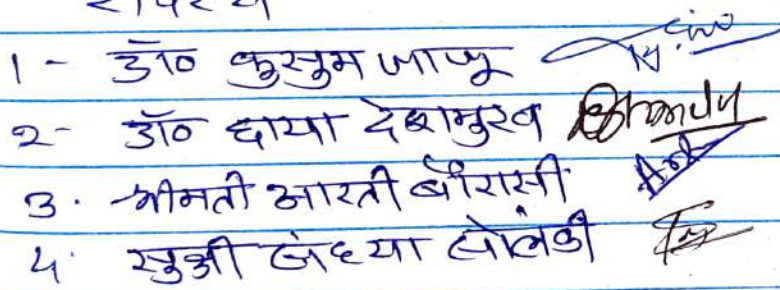 सदस्य
1 - डॉ० कुसुम जाजू
2 - डॉ० छाया देशमुख
3. श्रीमती आरती बौरासी
4. सुश्री संध्या सोलंकी